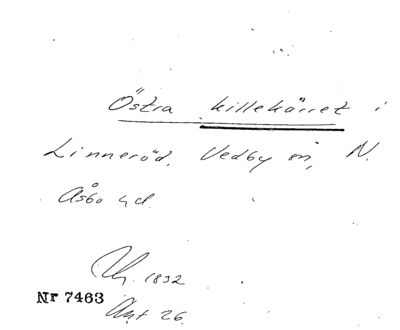 Östra killekärret i
Linneröd, Vedby sn, N.
Åsbo hd.
1832
Nr 7463
Akt 26